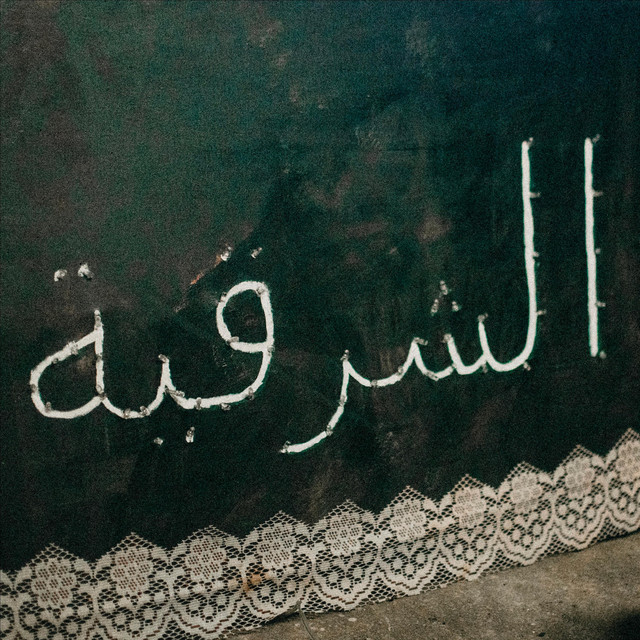 الشرقية